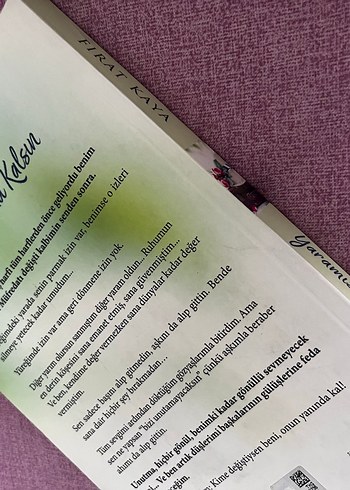 FIRAT KAYA
Yaramı
Kalsın
harfi tüm harflerden önce geliyordu benim
değişti kalbinin senden sonra.
yarada senin parmak izin var, benimse o izleri
silmeye yetecek kadar umudum...
Yüreğimde izin var ama geri dönmene izin yok.
Diğer yarım olursun sanmıştım diğer yaram oldun... Ruhumun
en derin köşesini sana emanet etmiş, sana güvenmiştim...
Ve ben, kendime değer vermezken sana dünyalar kadar değer
vermiştim.
Sen sadece başını alıp gitmedin, aşkını da alıp gittin. Bende
sana dair hiçbir şey bırakmadan...
Tüm sevgimi ardından döktüğüm gözyaşlarımla bitirdim. Ama
sen ne yapsan "bizi unutamayacaksın" türkü aşkınla beraber
ahımı da alıp gittin.
Unutma, hiçbir gönül, benimki kadar gönüllü sevmeyecek
Ve ben artık düşlerimi başkalarının gülüşlerine feda
Kime değiştiysen beni, onun yanında kal!